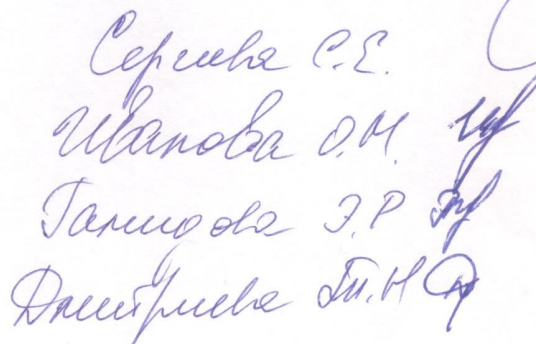 Сергеева С.Е.
Иванова О.Н.
Гамидова Э.Р
Дмитриева Т.Н